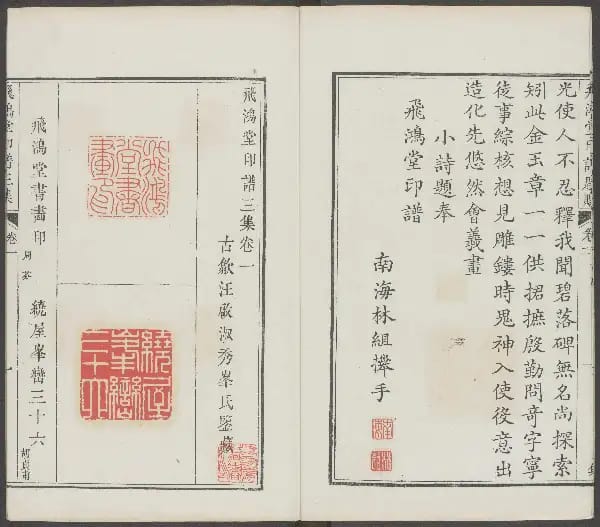 光使人不忍釋我聞碧落碑無名尚探索
矧此金玉章一一供捃摭殷勤問奇字寧
徒事綜核想見雕鏤時鬼神入使役意出
造化先悠然會羲畫
小詩題奉
飛鴻堂印譜
南海林組手
飛鴻堂印譜三集卷一
古歙汪啟淑秀峯氏鑒藏
飛鴻堂書畫印
繞屋峯巒三十六
飛鴻堂書畫印
周芬
繞屋峯巒三十六
胡貞甫
飛鴻堂印譜三集
卷一